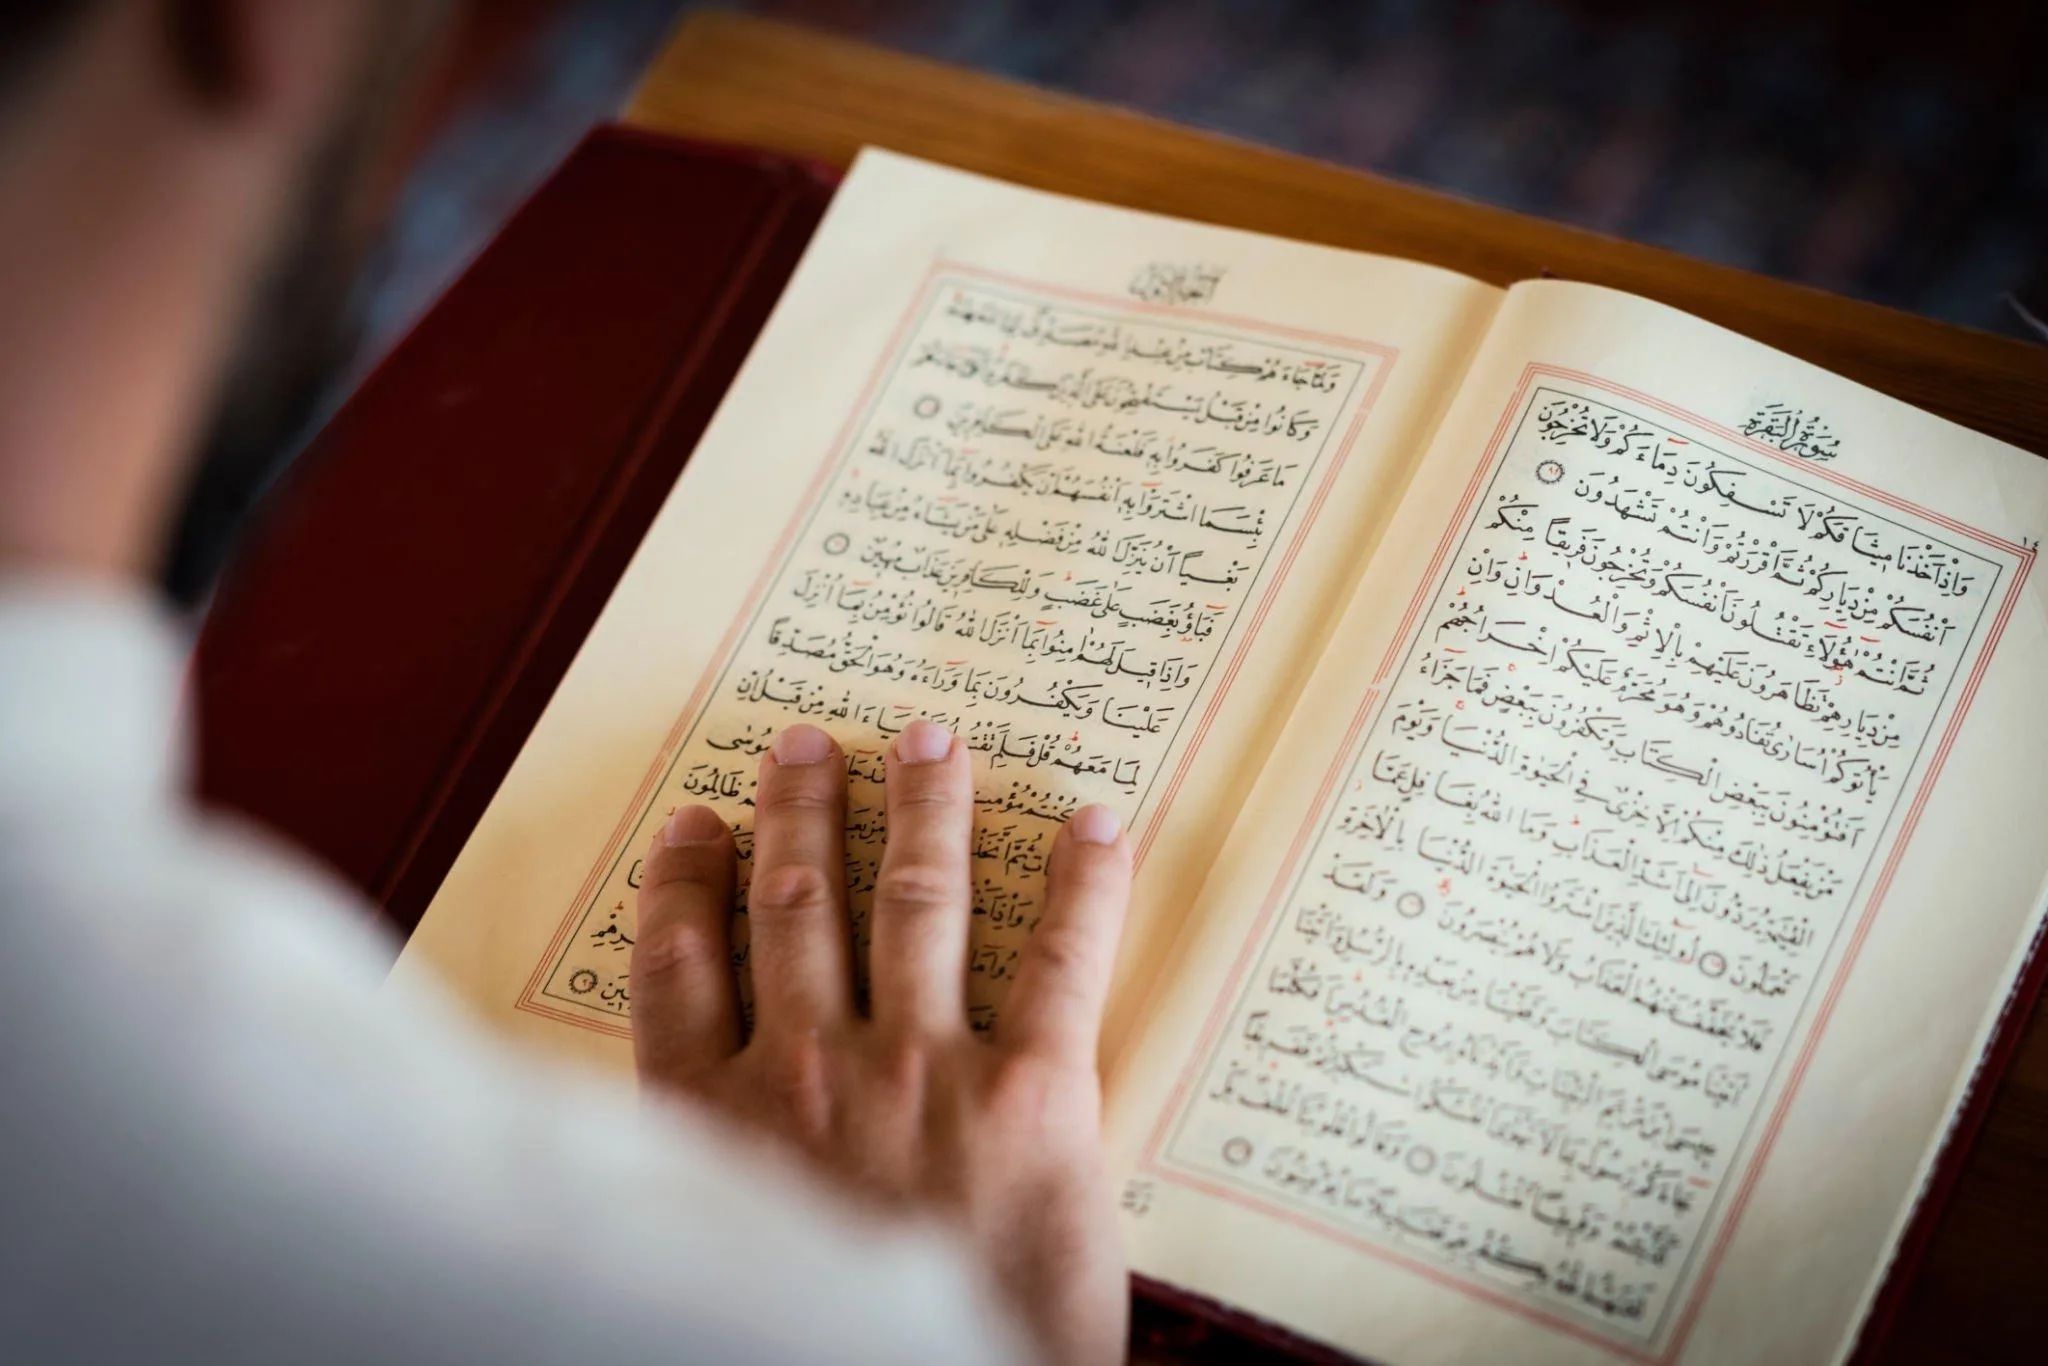 ١٤
سُورَةُ الْبَقَرَةِ
وَاِذْ اَخَذْنَا مِيثَاقَكُمْ لَا تَسْفِكُونَ دِمَٓاءَكُمْ وَلَا تُخْرِجُونَ
اَنْفُسَكُمْ مِنْ دِيَارِكُمْ ثُمَّ اَقْرَرْتُمْ وَاَنْتُمْ تَشْهَدُونَ
ثُمَّ اَنْتُمْ هٰٓؤُلَٓاءِ تَقْتُلُونَ اَنْفُسَكُمْ وَتُخْرِجُونَ فَرِيقًا مِنْكُمْ
مِنْ دِيَارِهِمْ تَظَاهَرُونَ عَلَيْهِمْ بِالْاِثْمِ وَالْعُدْوَانِ وَاِنْ
يَأْتُوكُمْ اُسَارٰى تُفَادُوهُمْ وَهُوَ مُحَرَّمٌ عَلَيْكُمْ اِخْرَاجُهُمْ
اَفَتُؤْمِنُونَ بِبَعْضِ الْكِتَابِ وَتَكْفُرُونَ بِبَعْضٍ فَمَا جَزَٓاءُ
مَنْ يَفْعَلُ ذٰلِكَ مِنْكُمْ اِلَّا خِزْيٌ فِي الْحَيٰوةِ الدُّنْيَا وَيَوْمَ
الْقِيٰمَةِ يُرَدُّونَ اِلٰٓى اَشَدِّ الْعَذَابِ وَمَا اللّٰهُ بِغَافِلٍ عَمَّا
تَعْمَلُونَ اُولٰٓئِكَ الَّذِينَ اشْتَرَوُا الْحَيٰوةَ الدُّنْيَا بِالْاٰخِرَةِ
فَلَا يُخَفَّفُ عَنْهُمُ الْعَذَابُ وَلَا هُمْ يُنْصَرُونَ وَلَقَدْ
اٰتَيْنَا مُوسَى الْكِتَابَ وَقَفَّيْنَا مِنْ بَعْدِهِ بِالرُّسُلِ وَاٰتَيْنَا
عِيسَى ابْنَ مَرْيَمَ الْبَيِّنَاتِ وَاَيَّدْنَاهُ بِرُوحِ الْقُدُسِ اَفَكُلَّمَا
جَٓاءَكُمْ رَسُولٌ بِمَا لَا تَهْوٰٓى اَنْفُسُكُمُ اسْتَكْبَرْتُمْ فَفَرِيقًا
كَذَّبْتُمْ وَفَرِيقًا تَقْتُلُونَ وَقَالُوا قُلُوبُنَا غُلْفٌ بَلْ
لَعَنَهُمُ اللّٰهُ بِكُفْرِهِمْ فَقَلِيلًا مَا يُؤْمِنُونَ
وَلَمَّا جَٓاءَهُمْ كِتَابٌ مِنْ عِنْدِ اللّٰهِ مُصَدِّقٌ لِمَا مَعَهُمْ
وَكَانُوا مِنْ قَبْلُ يَسْتَفْتِحُونَ عَلَى الَّذِينَ كَفَرُوا فَلَمَّا جَٓاءَهُمْ
مَا عَرَفُوا كَفَرُوا بِهِ فَلَعْنَةُ اللّٰهِ عَلَى الْكَافِرِينَ
بِئْسَمَا اشْتَرَوْا بِهِٓ اَنْفُسَهُمْ اَنْ يَكْفُرُوا بِمَٓا اَنْزَلَ اللّٰهُ
بَغْيًا اَنْ يُنَزِّلَ اللّٰهُ مِنْ فَضْلِهِ عَلٰى مَنْ يَشَٓاءُ مِنْ عِبَادِهِ
فَبَٓاؤُ بِغَضَبٍ عَلٰى غَضَبٍ وَلِلْكَافِرِينَ عَذَابٌ مُهِينٌ
وَاِذَا قِيلَ لَهُمْ اٰمِنُوا بِمَٓا اَنْزَلَ اللّٰهُ قَالُوا نُؤْمِنُ بِمَٓا اُنْزِلَ
عَلَيْنَا وَيَكْفُرُونَ بِمَا وَرَٓاءَهُ وَهُوَ الْحَقُّ مُصَدِّقًا
لِمَا مَعَهُمْ قُلْ فَلِمَ اللّٰهِ مِنْ قَبْلُ اِنْ
كُنْتُمْ مُوسٰى
ظَالِمُونَ